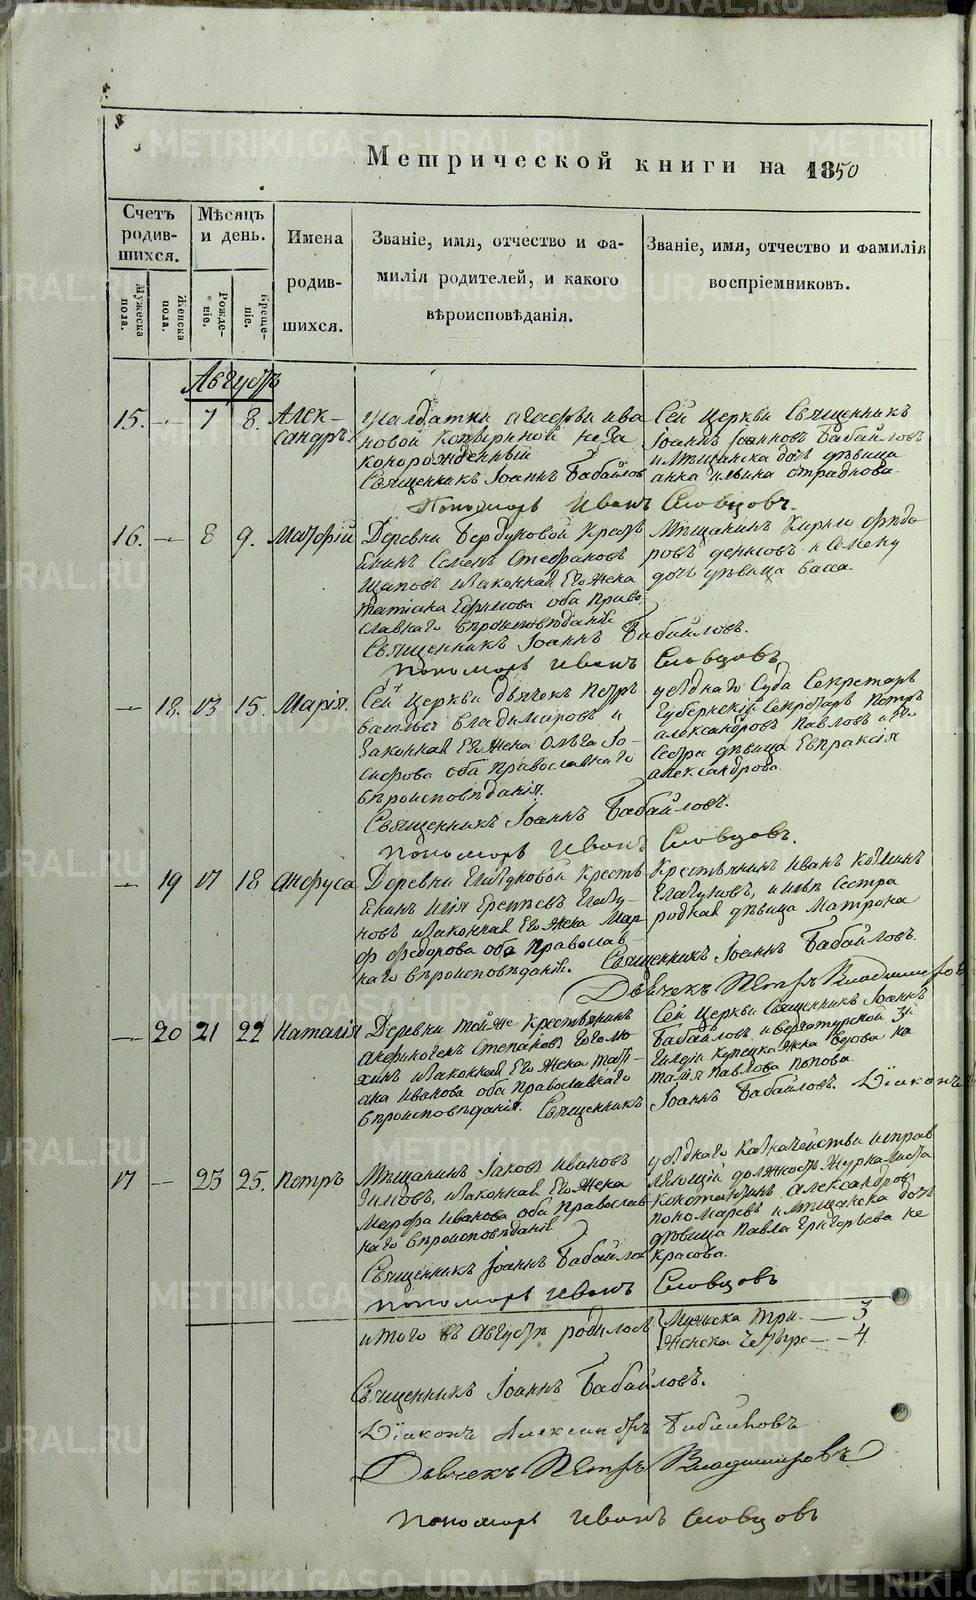 Метрической книги на 1850
Счетъ родив-шихся.
Мѣсяцъ и день.
Имена родив-шихся.
Званіе, имя, отчество и фа-
милія родителей, и какого
вѣроисповѣданія.
Званіе, имя, отчество и фамилія
воспріемниковъ.
Мужеска пола.
Женска пола.
Рожде-ніе.
Креще-ніе.
Августъ
15. — 7 8. Алек-
сандръ.
Салдатки Агафьи Ива
новой неза
коннорожденный
Священникъ Іоаннъ Бабайлов
Сей церкви Священникъ
Іоаннъ Іоанновъ Бабайловъ
и мѣщанска дочь дѣвица
Анна Ильина
Пономарь Иванъ Словцовъ.
16. — 8 9. Матфій
Деревни Бердуковой Крест
янинъ Семенъ Стефановъ
Щаповъ и законная его жена
Татіана Ефимова оба Право
славнаго вѣроисповѣданія
Священникъ Іоаннъ Бабайловъ.
Пономарь Иванъ Словцовъ
Мѣщанинъ Кирило Фндо
ровъ
дочь дѣвица Васса.
— 18. 13 15. Марія.
Сей церкви дьячекъ Петръ
Васильевъ Владиміровъ и
Законная его жена Ольга Іо-
сифова оба Православнаго
вѣроисповѣданія.
Священникъ Іоаннъ Бабайловъ.
Пономарь Иванъ Словцовъ.
уѣзднаго Суда Секретарь
Губернскій Секретарь Петръ
Александровъ Павловъ и его
Сестра дѣвица Евпраксія
Александрова.
— 19 17 18 Анфуса
Деревни Глазуновой Кресть
янинъ Илія Ереміевъ Глазу-
новъ и законная его жена Мар
ф Федорова оба Православ-
наго вѣроисповѣданія. Священникъ Іоаннъ Бабайловъ.
Крестьянинъ Иванъ Козминъ
Глазуновъ, и Иліи Сестра
родная дѣвица Матрона
Дьячекъ Петръ Владиміровъ
— 20 21 22 Наталія
Деревни той же Крестьянинъ
Анфиногенъ Степановъ Гоголю
хинъ и законная его жена Тат-
ана Иванова оба Православнаго
вѣроисповѣданія. Священникъ Іоаннъ Бабайловъ. Діаконъ
Сей церкви Священникъ Іоаннъ
Бабайловъ и верхотурской 3й
Гильдіи Купецка жена вдова На
талія Павлова Попова
17 — 23 25. Петръ
Мѣщанинъ Іаковъ Ивановъ
Зимовъ, и законная его жена
Марфа Иванова оба Православ
наго вѣроисповѣданія
Священникъ Іоаннъ Бабайлов
Пономарь Иванъ Словцовъ
уѣзднаго Казначейства исправ
ляющій должность Журналиста
Константинъ Александров
Пономаревъ и мѣщанска дочь
дѣвица Павла Григорьева Не
красова.
итого въ Августѣ родилось
Мужска три. — 3
Женска четыре — 4
Священникъ Іоаннъ Бабайловъ.
Діаконъ Александръ Бабайловъ
Дьячекъ Петръ Владиміровъ
Пономарь Иванъ Словцовъ
METRIKI.GASO-URAL.RU